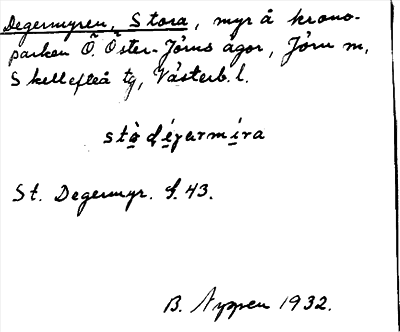 Degermyren, Stora, myr å krono-
parken Ö. Öster-Jörns ägor, Jörn m,
Skellefteå tg, Västerb. l.
stò dígærmíra
St. Degermyr. S. 43.
B. Nyppen 1932.